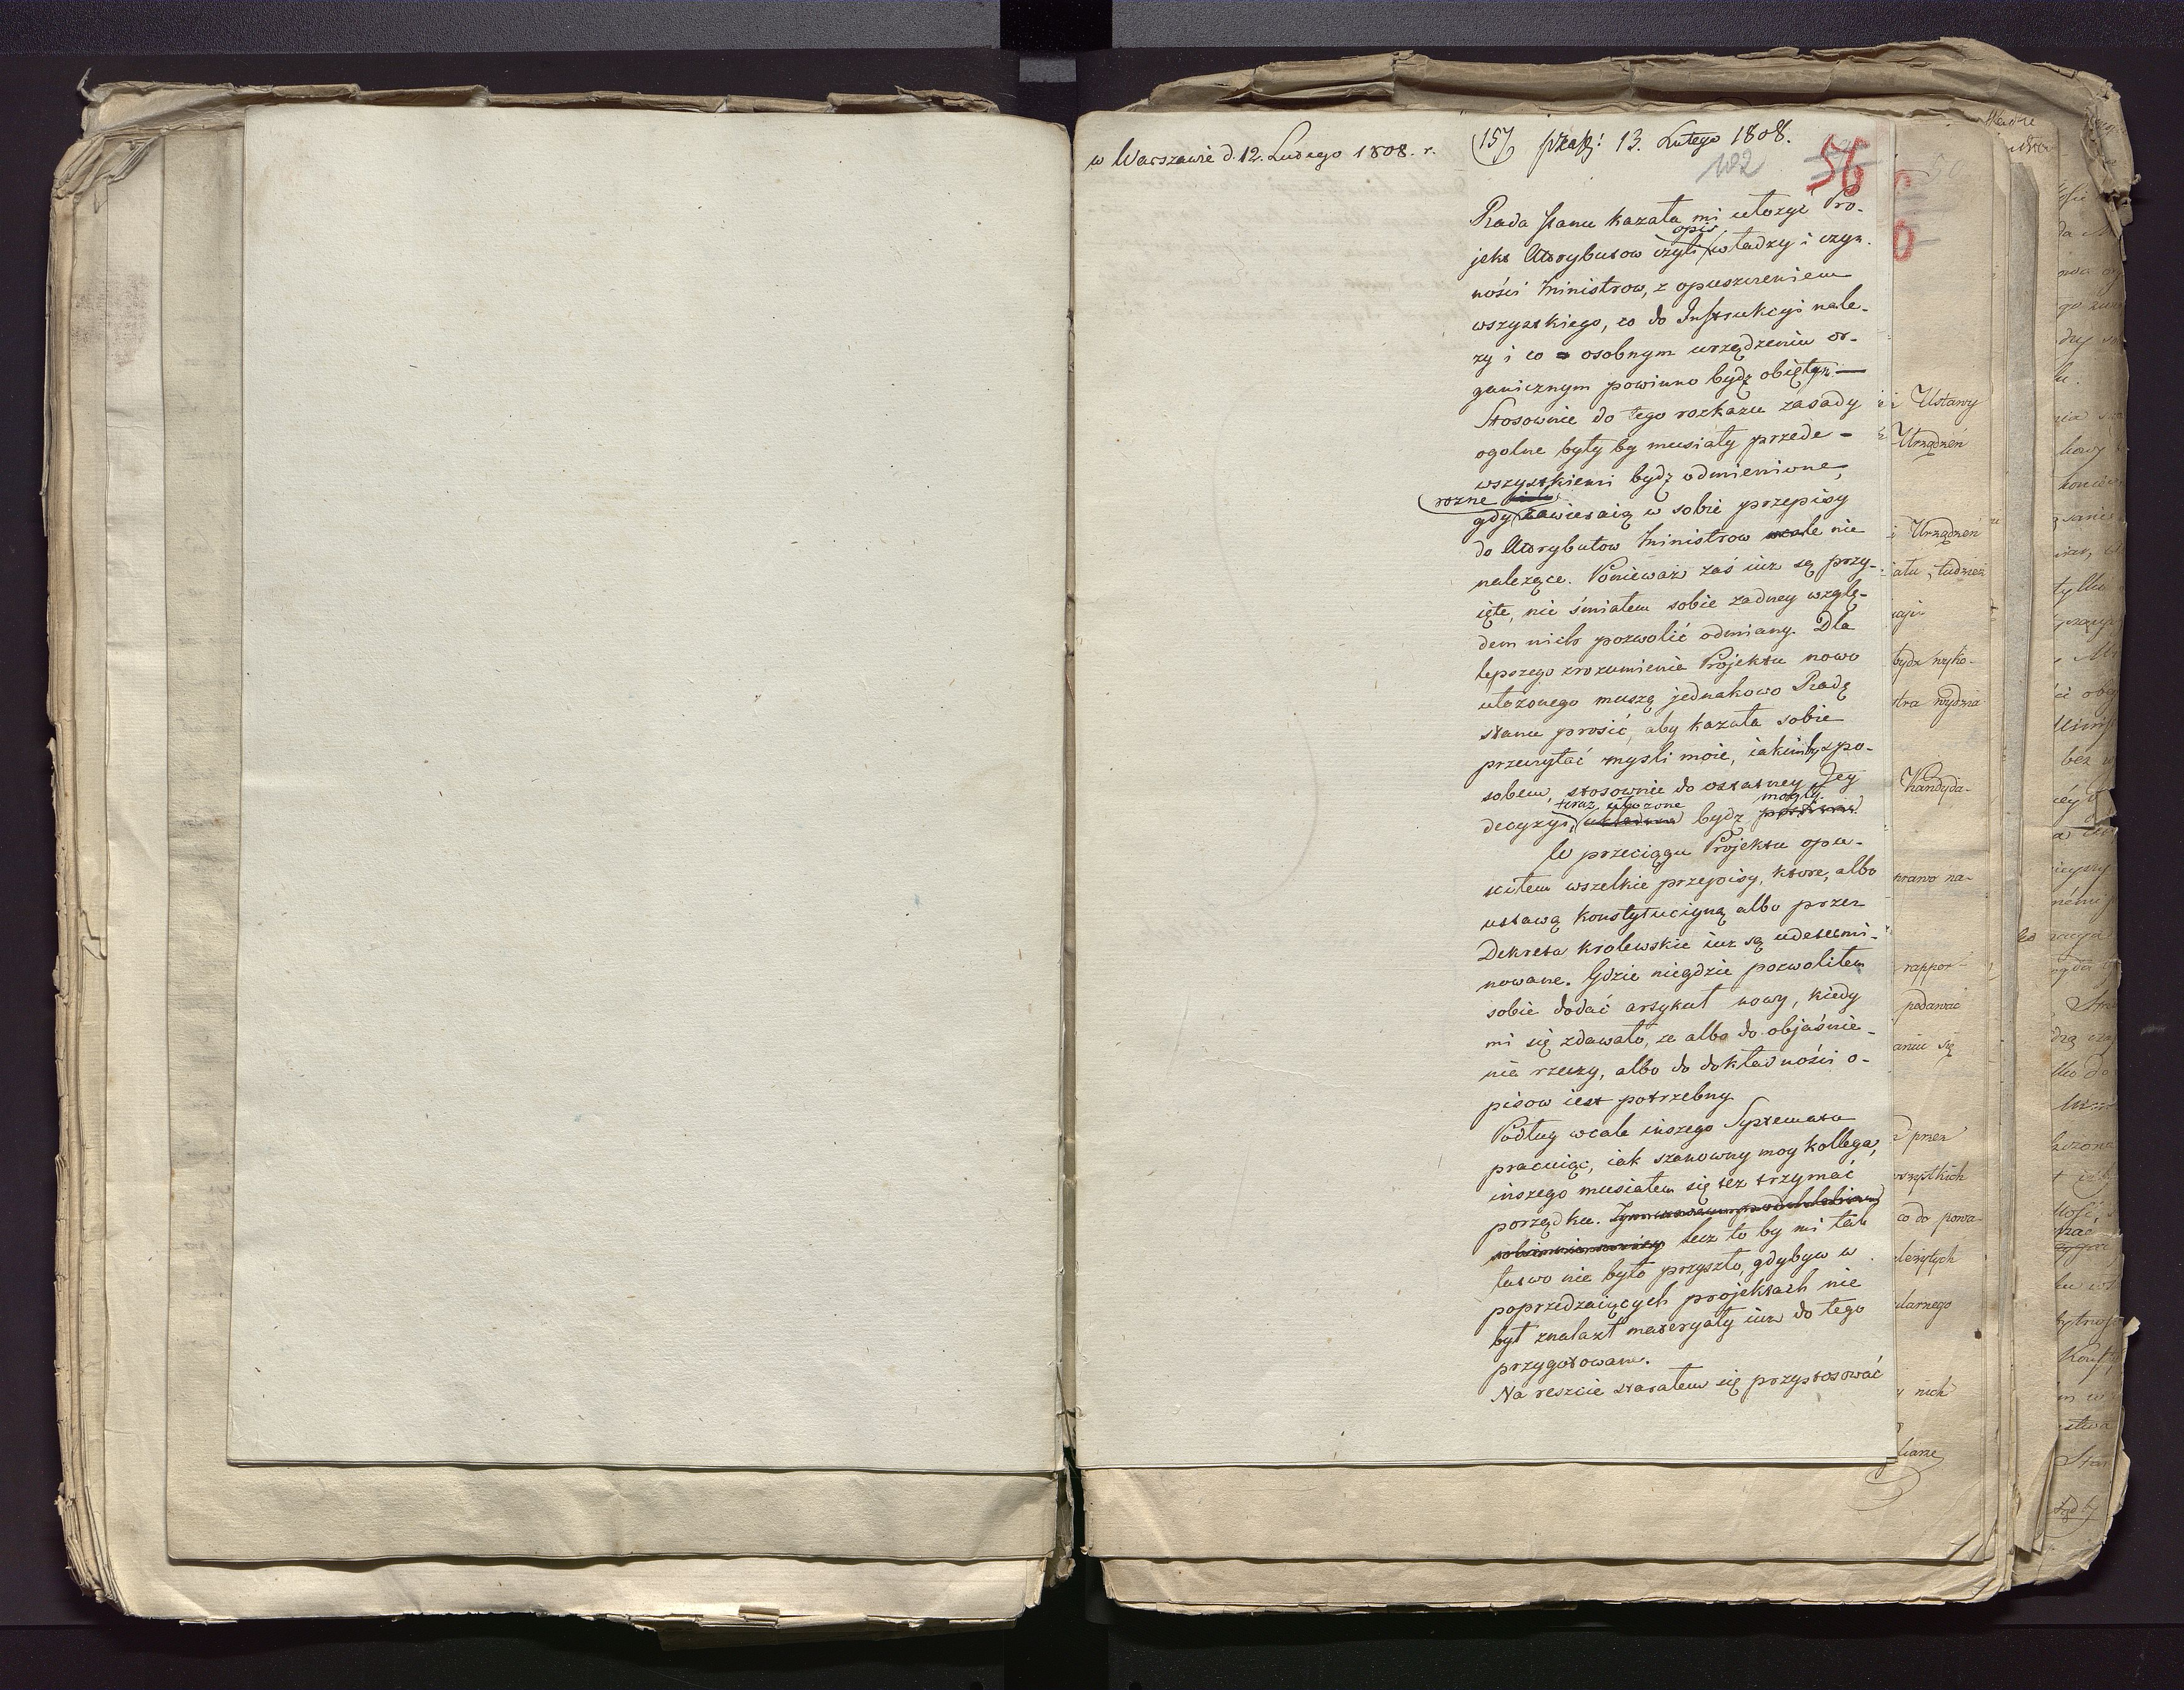 w Warszawie d. 12. Lutego 1808. r.
157 13. Lutego 1808.
102
56
Rada stanu kazała mi ułożyć Pro-
jekt Attrybutow czyli opis władzy i czyn-
ności Ministrow, z opuszczeniem
wszystkiego, co do Instrukcyi nale-
zy i co osobnym urządzeniu or-
ganicznym powinno bydź obiętym —
Stosownie do tego rozkazu zasady
ogolne były by musiały przede-
wszystkiemi bydź odmienione,
gdy rozne zawieraią w sobie przepisy
do Attrybutow Ministrow wcale nie
nalezące. Ponieważ zaś iuz są przy-
ięte, nie śmiałem sobie zadney wzglę-
dem nich pozwolić odmiany. Dla
lepszego zrozumienia Projektu nowo
ułozonego muszę jednakowo Radę
stanu prosić, aby kazała sobie
przeczytać mysli moie, iakimby spo-
sobem, stosownie do ostatney Jey
decyzyi, teraz ułozone bydz mogły.
W przeciągu Projektu opu-
sciłem wszelkie przepisy, ktore, albo
ustawą konstytucyiną albo przez
Dekreta krolewskie iuz są udetermi-
nowane. Gdzie niegdzie pozwoliłem
sobie dodać artykuł nowy, kiedy
mi się zdawało, ze albo do objaśnie-
nia rzeczy, albo do dokładności o-
pisow iest potrzebny
Podług wcale inszego Systematu
pracuiąc, iak szanowny moy kollega,
inszego musiałem się tez trzymać
porządku.
lecz to by mi tak
łatwo nie było przyszło, gdybym w
poprzedzaiących projektach nie
był znalazł materyały iuz do tego
przygotowane.
Na reszcie starałem się przystosować
Ustawy
Urządzeń
i Urządzeń
atu, tudzież
bydz wyko-
stra wydzia
Kandyda-
prawo na-
rappor-
podawać
aniu się
przez
wszystkich
co do powa-
nich